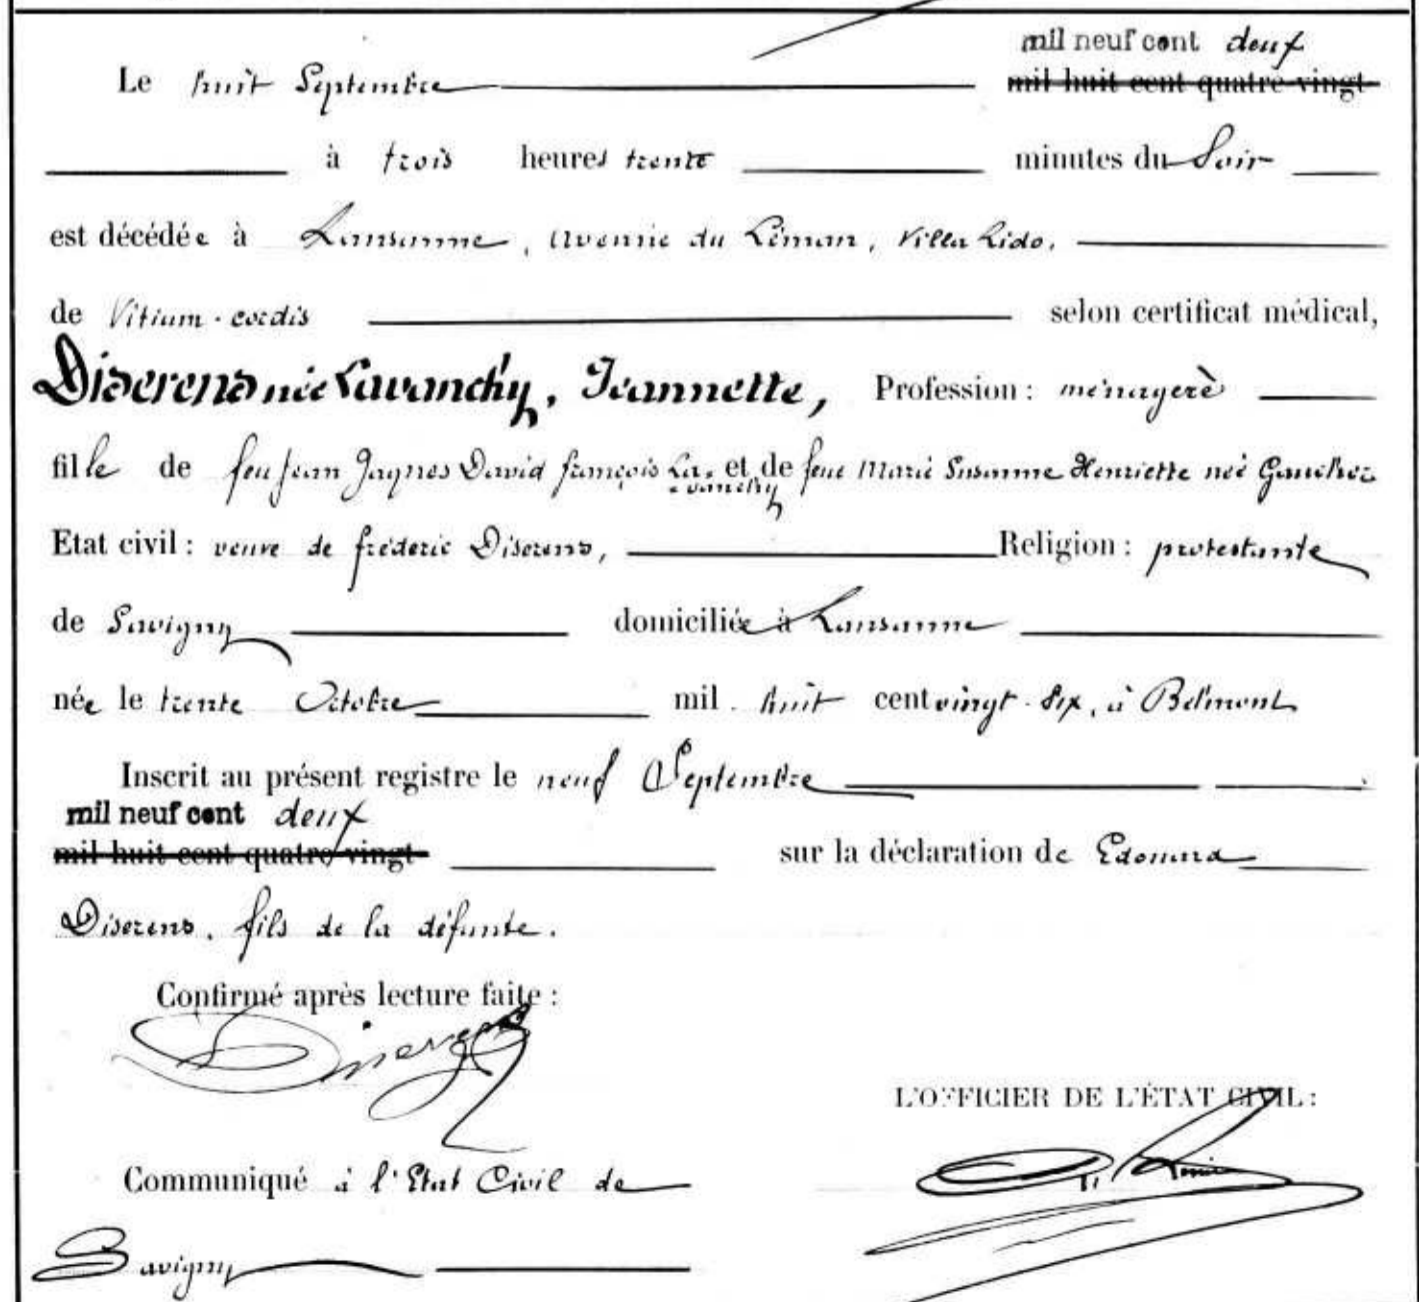 mil neuf cent deux
Le huit Septembre mil huit cent quatre-vingt
à trois heures trente minutes du Soir
est décédée à Lausanne, Avenue du Léman, Villa Lido,
de Vitium-cordis selon certificat médical,
Diserens née Lavanchy, Jeannette, Profession : ménagère
fille de feu Jean Jaques David françois La- et de feue Marie Susanne Henriette née
vanchy
Etat civil : veuve de fréderic Diserens, Religion : protestante
de Savigny domiciliée à Lausanne
née le trente Octobre mil huit cent vingt-six, à Belmont
Inscrit au présent registre le neuf Septembre
mil neuf cent deux
mil huit cent quatre-vingt sur la déclaration de Edouard
Diserens, fils de la défunte.
Confirmé après lecture faite :
Diserens
L'OFFICIER DE L'ÉTAT CIVIL :
Communiqué à l'Etat Civil de
Savigny